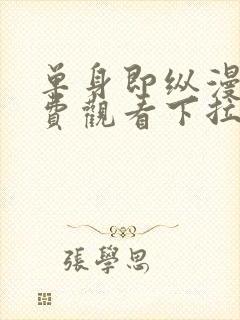 单身即纵漫
费觀看下拉
張學思